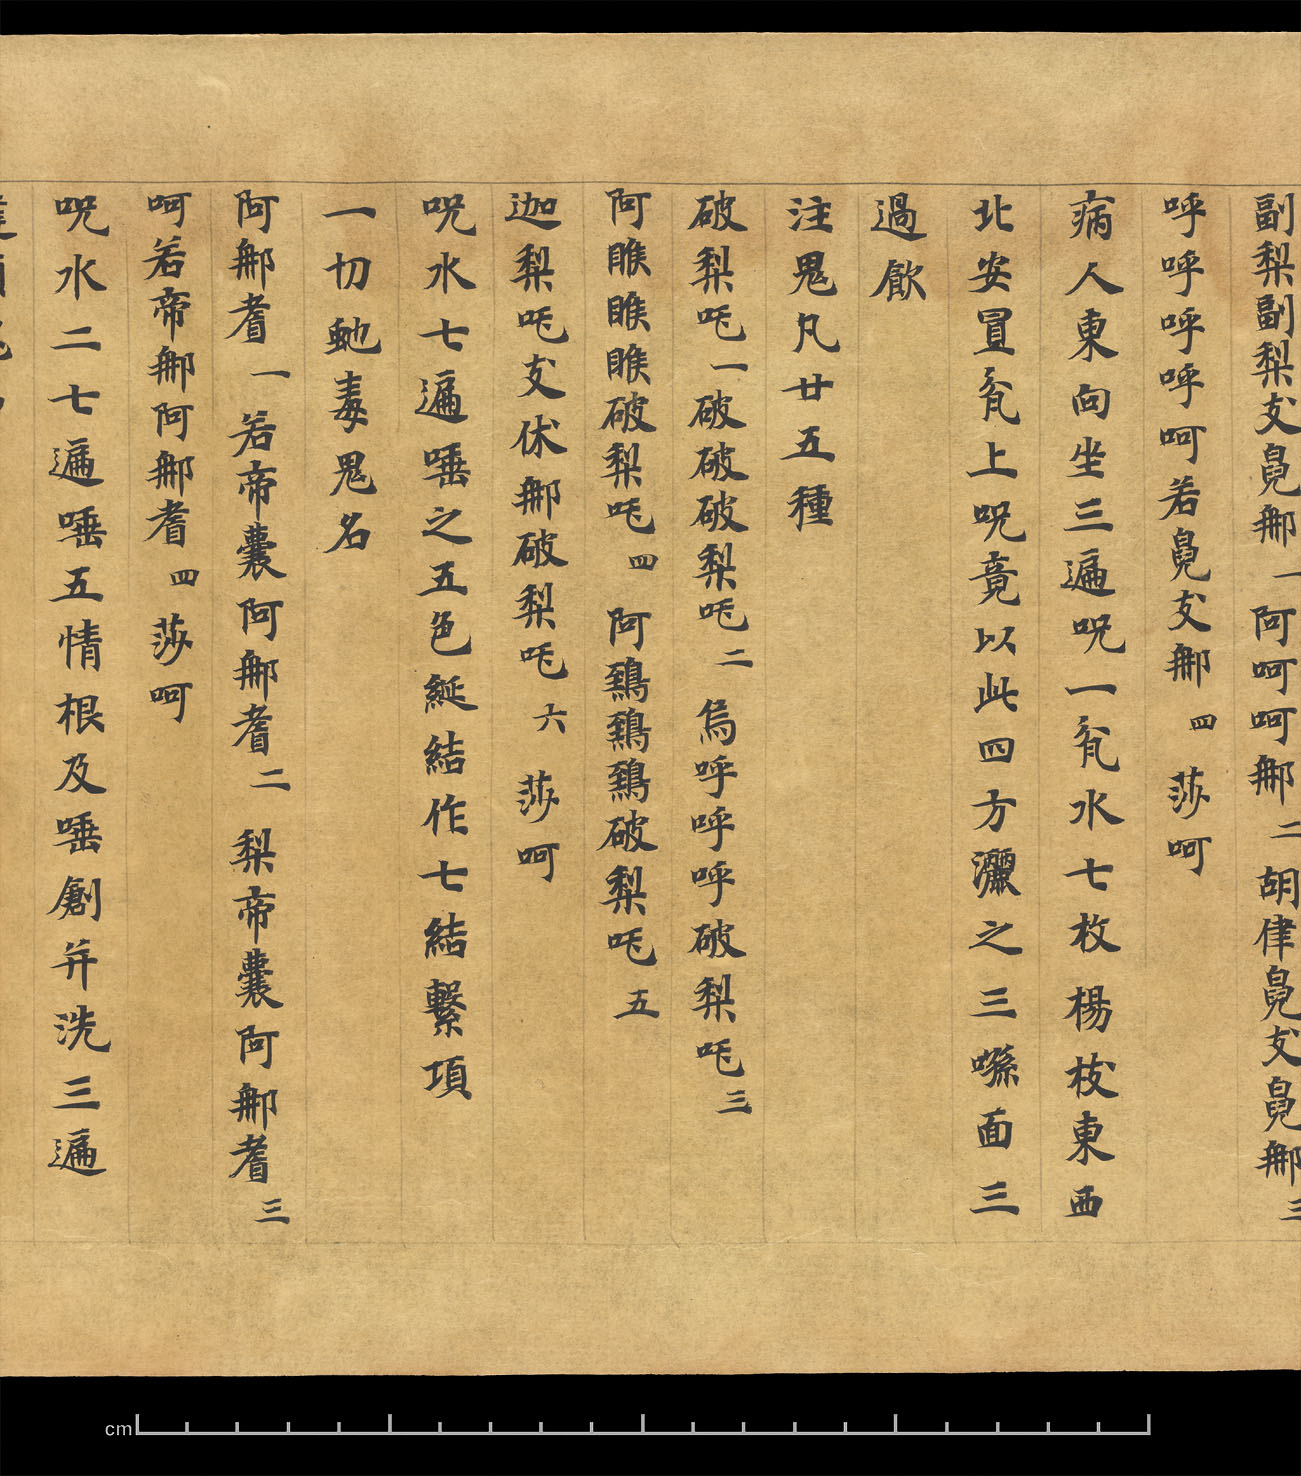 副梨副梨攴鼿䣭一阿呵呵䣭二胡律鼿攴鼿䣭三
呼呼呼呼呵若鼿攴䣭四莎呵
病人東向坐三遍呪一瓫水七枚楊枝東西
北安置瓫上呪竟以此四方灑之三噀面三
過飲
注鬼凡廿五種
破梨吒一破破破梨吒二烏呼呼呼破梨吒三
阿睺睺睺破梨吒四阿鵄鵄鵄破梨吒五
迦梨吒攴伏䣭破梨吒六莎呵
呪水七遍唾之五色綖結作七結繫項
一切虵毒鬼名
阿䣭耆一若帝囊阿䣭耆二梨帝囊阿䣭耆三
呵若帝䣭阿䣭耆四莎呵
呪水二七遍唾五情根及唾創并洗三遍